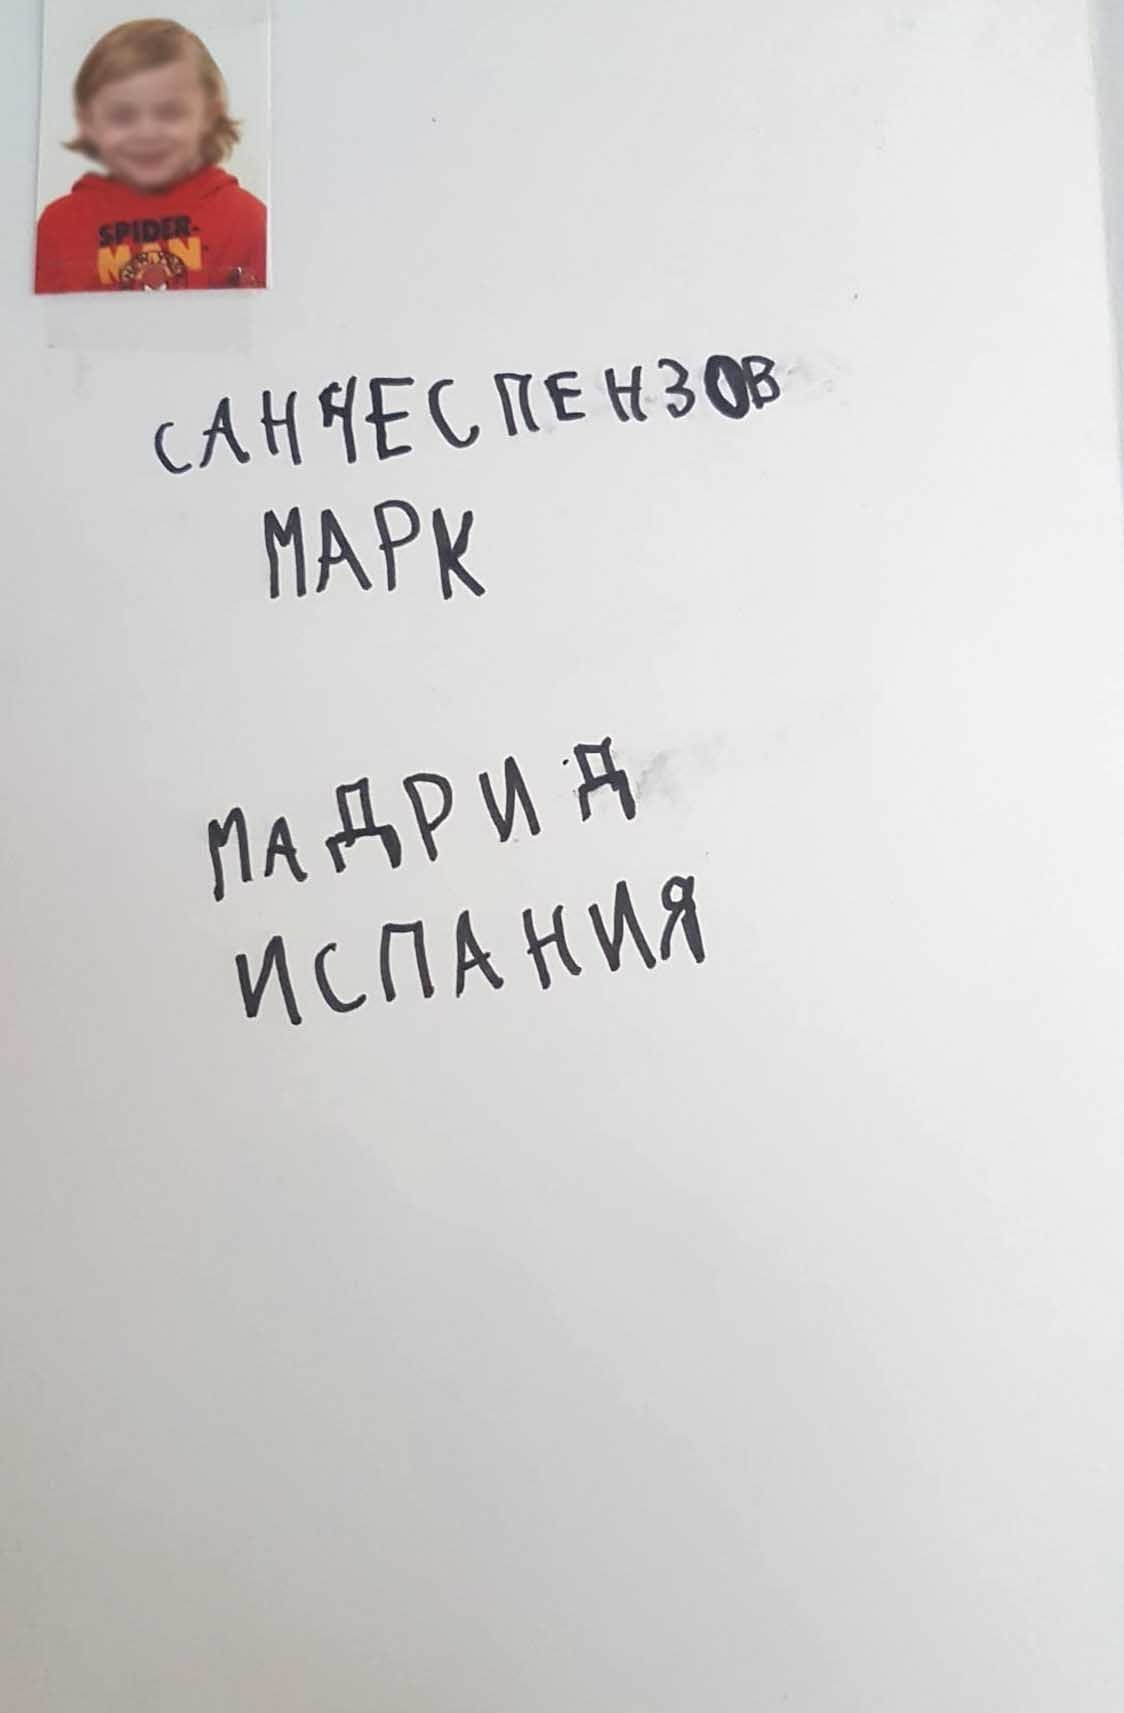 SPIDER-
MAN
САНЧЕСПЕНЗОВ
МАРК
МАДРИД
ИСПАНИЯ